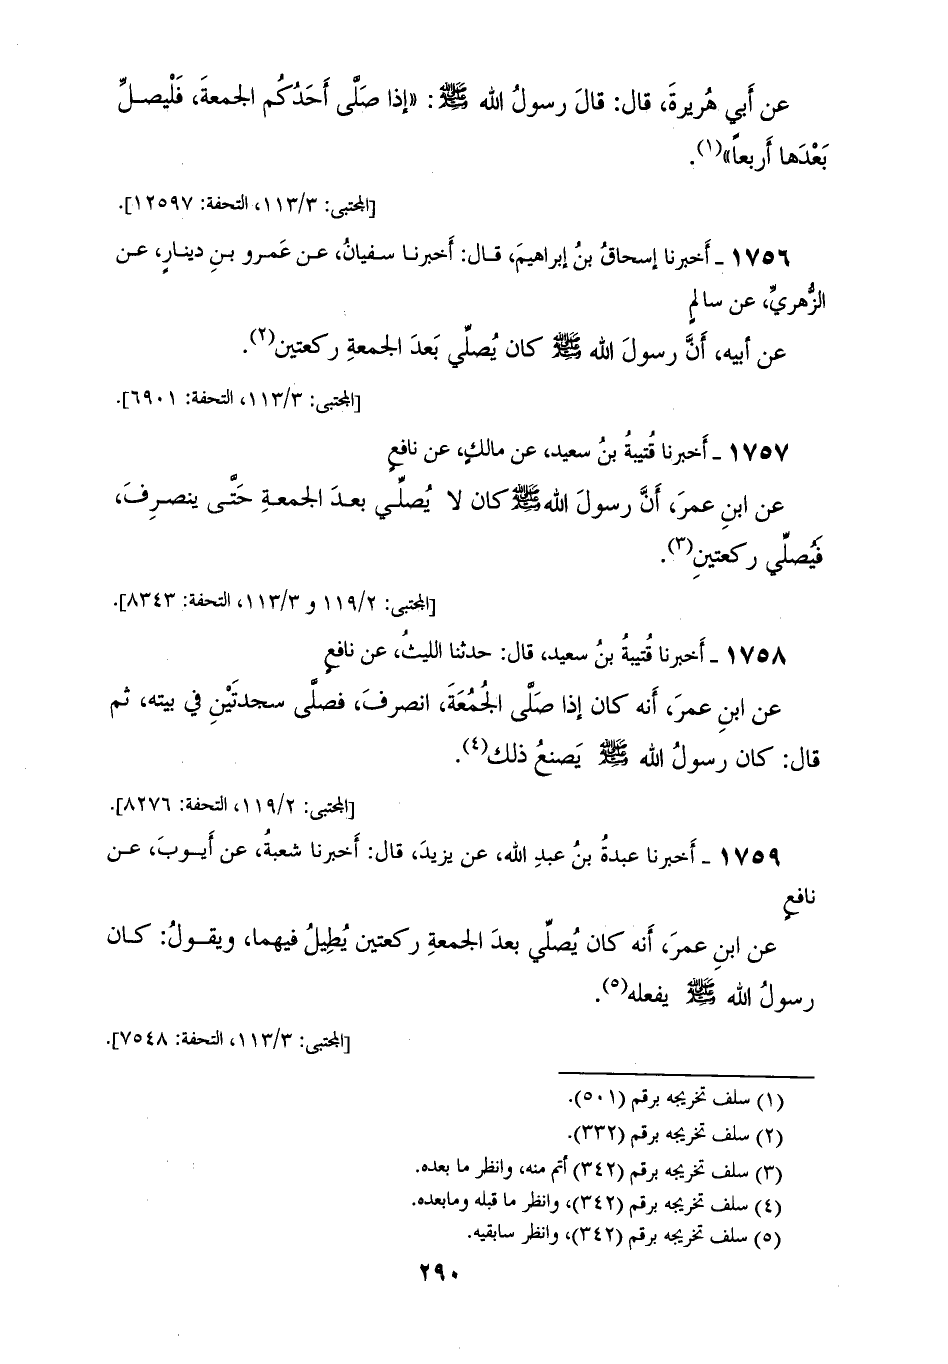 عن أَبي هُريرةَ، قال: قالَ رسولُ الله ﷺ: «إذا صَلَّى أَحَدُكُم الجمعةَ، فَلْيصلِّ
بَعْدَها أَربعاً»(١).
[المجتبى: ١١٣/٣، التحفة: ١٢٥٩٧].
١٧٥٦ ـ أَخبرنا إسحاقُ بنُ إبراهيمَ، قال: أَخبرنا سفيانُ، عن عَمرو بنِ دينارٍ، عن
الزُّهريِّ، عن سالمٍ
عن أبيه، أَنَّ رسولَ الله ﷺ كان يُصلِّي بَعدَ الجمعةِ ركعتين(٢).
[المجتبى: ١١٣/٣، التحفة: ٦٩٠١].
١٧٥٧ ـ أَخبرنا قُتيبةُ بنُ سعيد، عن مالكٍ، عن نافعٍ
عن ابنِ عمرَ، أَنَّ رسولَ الله ﷺ كان لا يُصلِّي بعدَ الجمعةِ حَتَّى ينصرِفَ،
فَيُصلِّي ركعتينِ(٣).
[المجتبى: ١١٩/٢ و ١١٣/٣، التحفة: ٨٣٤٣].
١٧٥٨ ـ أَخبرنا قُتيبةُ بنُ سعيد، قال: حدثنا الليثُ، عن نافعٍ
عن ابنِ عمرَ، أَنه كان إذا صَلَّى الجُمُعَةَ، انصرفَ، فصلَّى سجدتَيْنِ في بيته، ثم
قال: كان رسولُ الله ﷺ يَصنعُ ذلك(٤).
[المجتبى: ١١٩/٢، التحفة: ٨٢٧٦].
١٧٥٩ ـ أَخبرنا عبدةُ بنُ عبدِ الله، عن يزيدَ، قال: أَخبرنا شعبةُ، عن أَيوبَ، عن
نافعٍ
عن ابنِ عمرَ، أَنه كان يُصلِّي بعدَ الجمعةِ ركعتين يُطِيلُ فيهما، ويقولُ: كان
رسولُ الله ﷺ يفعله(٥).
[المجتبى: ١١٣/٣، التحفة: ٧٥٤٨].
(١) سلف تخريجه برقم (٥٠١).
(٢) سلف تخريجه برقم (٣٣٢).
(٣) سلف تخريجه برقم (٣٤٢) أتم منه، وانظر ما بعده.
(٤) سلف تخريجه برقم (٣٤٢)، وانظر ما قبله ومابعده.
(٥) سلف تخريجه برقم (٣٤٢)، وانظر سابقيه.
٢٩٠